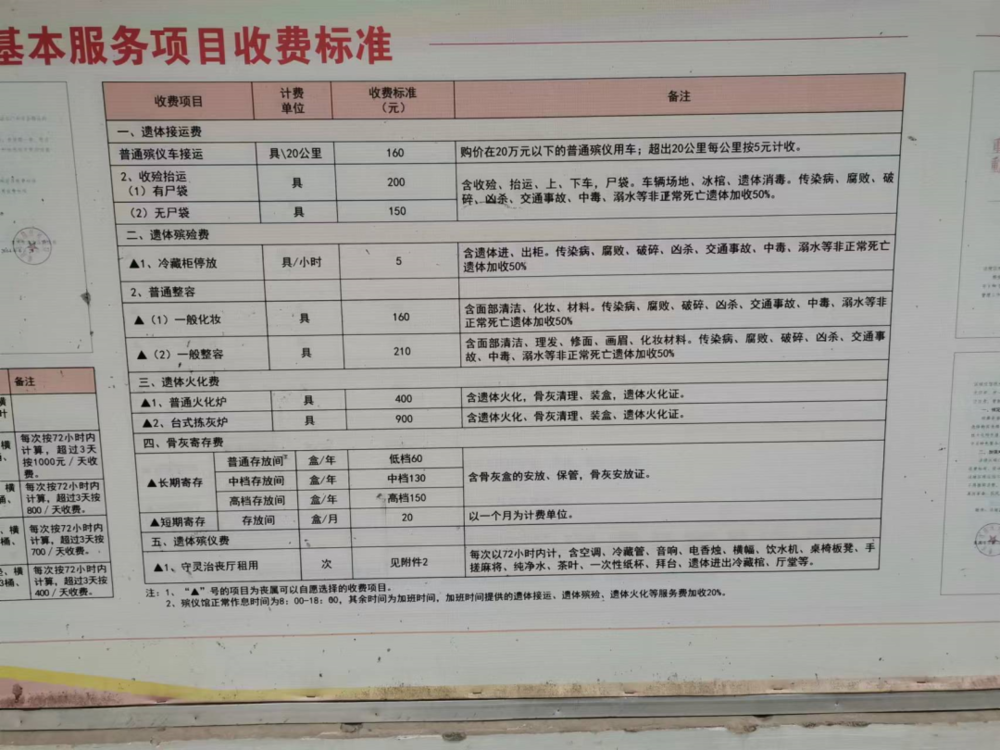 基本服务项目收费标准
收费项目 计费单位 收费标准（元） 备注
一、遗体接运费
普通殡仪车接运 具\20公里 160 购价在20万元以下的普通殡仪用车；超出20公里每公里按5元计收。
2、收殓抬运
（1）有尸袋 具 200 含收殓、抬运、上、下车，尸袋。车辆场地、冰棺、遗体消毒。传染病、腐败、破
碎、凶杀、交通事故、中毒、溺水等非正常死亡遗体加收50%。
（2）无尸袋 具 150
二、遗体殡殓费
▲1、冷藏柜停放 具/小时 5 含遗体进、出柜。传染病、腐败、破碎、凶杀、交通事故、中毒、溺水等非正常死亡
遗体加收50%
2、普通整容
▲（1）一般化妆 具 160 含面部清洁、化妆、材料。传染病、腐败、破碎、凶杀、交通事故、中毒、溺水等非
正常死亡遗体加收50%
▲（2）一般整容 具 210 含面部清洁、理发、修面、画眉、化妆材料。传染病、腐败、破碎、凶杀、交通事
故、中毒、溺水等非正常死亡遗体加收50%
三、遗体火化费
▲1、普通火化炉 具 400 含遗体火化，骨灰清理、装盒，遗体火化证。
▲2、台式拣灰炉 具 900 含遗体火化、骨灰清理、装盒、遗体火化证。
四、骨灰寄存费
▲长期寄存 普通存放间 盒/年 低档60 含骨灰盒的安放、保管，骨灰安放证。
中档存放间 盒/年 中档130
高档存放间 盒/年 高档150
▲短期寄存 存放间 盒/月 20 以一个月为计费单位。
五、遗体殡仪费
▲1、守灵治丧厅租用 次 见附件2 每次以72小时内计，含空调、冷藏管、音响、电香烛、横幅、饮水机、桌椅板凳、手
搓麻将、纯净水、茶叶、一次性纸杯、拜台、遗体进出冷藏棺、厅堂等。
注：1、“▲”号的项目为丧属可以自愿选择的收费项目。
2、殡仪馆正常作息时间为8：00-18：00，其余时间为加班时间，加班时间提供的遗体接运、遗体殡殓、遗体火化等服务费加收20%。
备注
每次按72小时内
计算，超过3天
按1000元/天收
费。
每次按72小时内
计算，超过3天按
800/天收费。
每次按72小时内
计算，超过3天按
700/天收费。
每次按72小时内
计算，超过3天按
400/天收费。